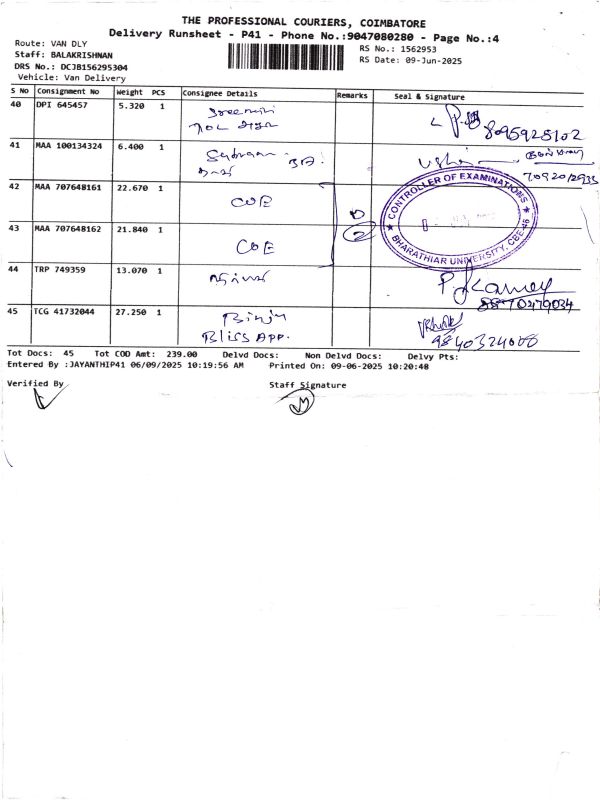 THE PROFESSIONAL COURIERS, COIMBATORE
Delivery Runsheet - P41 - Phone No.:9047080280 - Page No.:4
Route: VAN DLY
Staff: BALAKRISHNAN
DRS No.: DCJB156295304
Vehicle: Van Delivery
RS No.: 1562953
RS Date: 09-Jun-2025
S No Consignment No Weight PCS Consignee Details Remarks Seal & Signature
40 DPI 645457 5.320 1
8095928102
41 MAA 100134324 6.400 1
42 MAA 707648161 22.670 1 COE
43 MAA 707648162 21.840 1 COE 2
CONTROLLER OF EXAMINATIONS
BHARATHIAR UNIVERSITY, CBE-46
44 TRP 749359 13.070 1
8870479034
45 TCG 41732044 27.250 1 Binju
Bliss App.
Tot Docs: 45 Tot COD Amt: 239.00 Delvd Docs: Non Delvd Docs: Delvy Pts:
Entered By :JAYANTHIP41 06/09/2025 10:19:56 AM Printed On: 09-06-2025 10:20:48
Verified By Staff Signature